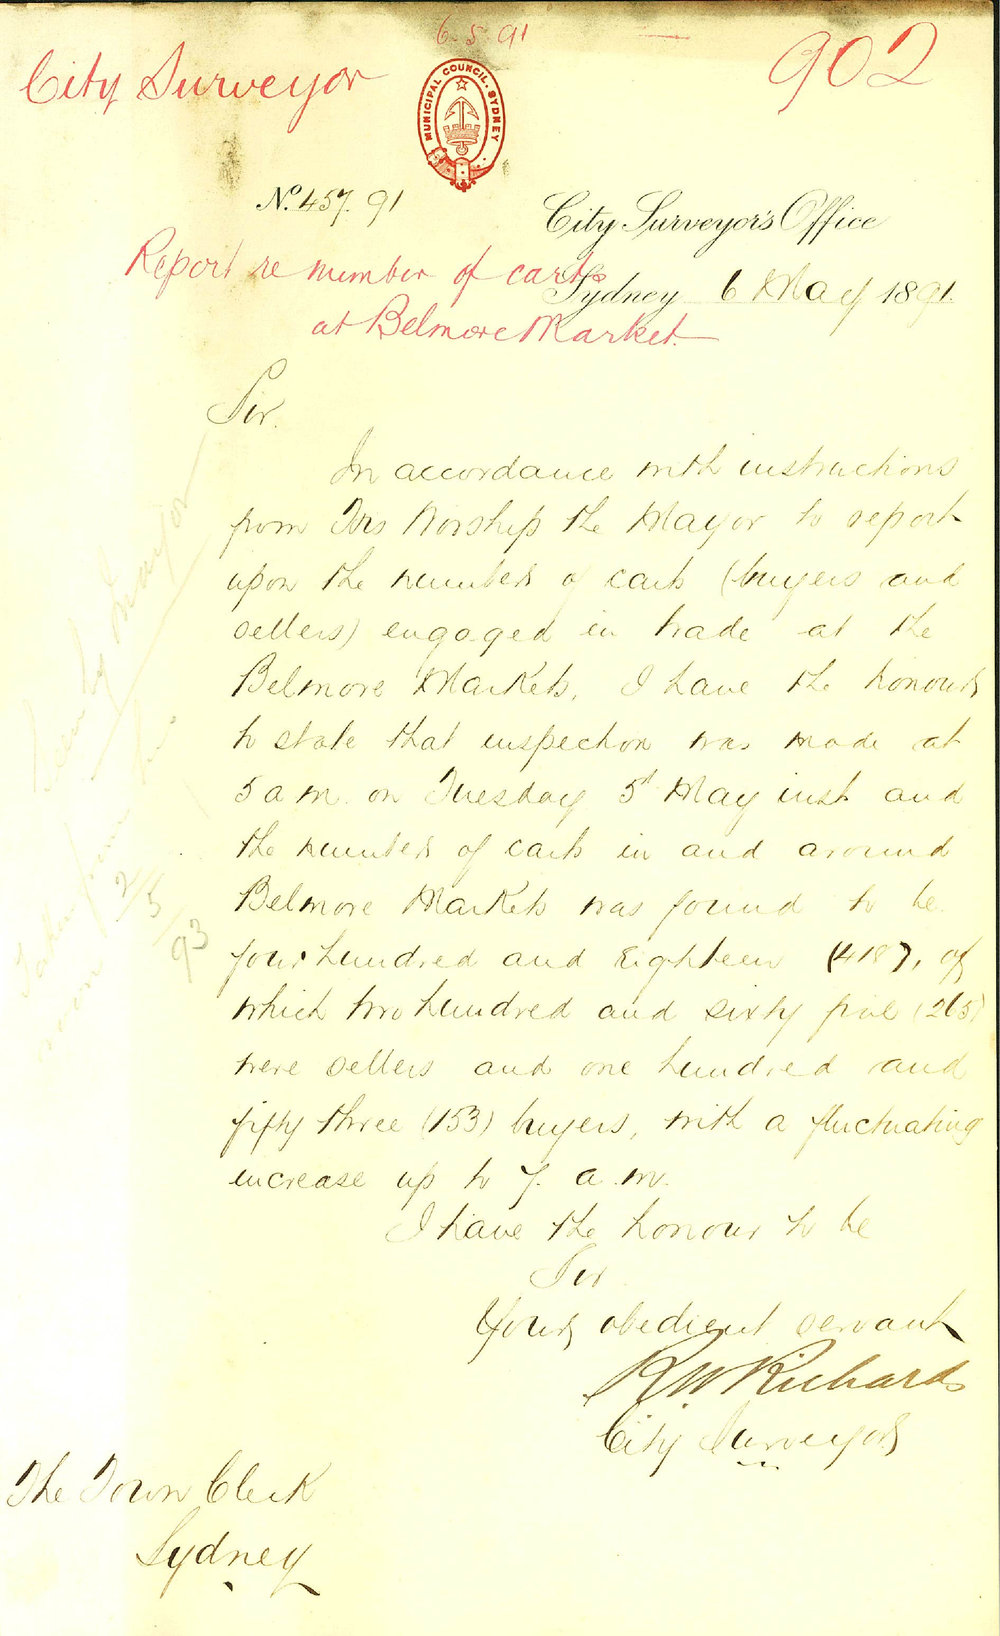 6.5.91
City Surveyor
902
MUNICIPAL COUNCIL. SYDNEY
No. 457. 91
City Surveyor's Office
Report re number of carts
Sydney 6 May 1891.
at Belmore Market.
Sir.
In accordance with instructions
from His Worship the Mayor to report
upon the number of carts (buyers and
sellers) engaged in trade at the
Belmore Markets, I have the honour
to state that inspection was made at
5 a m. on Tuesday 5th May inst and
the number of carts in and around
Belmore Markets was found to be
four hundred and Eighteen (418), of
which two hundred and sixty five (265)
were sellers and one hundred and
fifty three (153) buyers, with a fluctuating
increase up to 7. a.m.
I have the honour to be
Sir
Your obedient servant
R W Richards
City Surveyor
The Town Clerk
Sydney
by Mayor
2/5/93